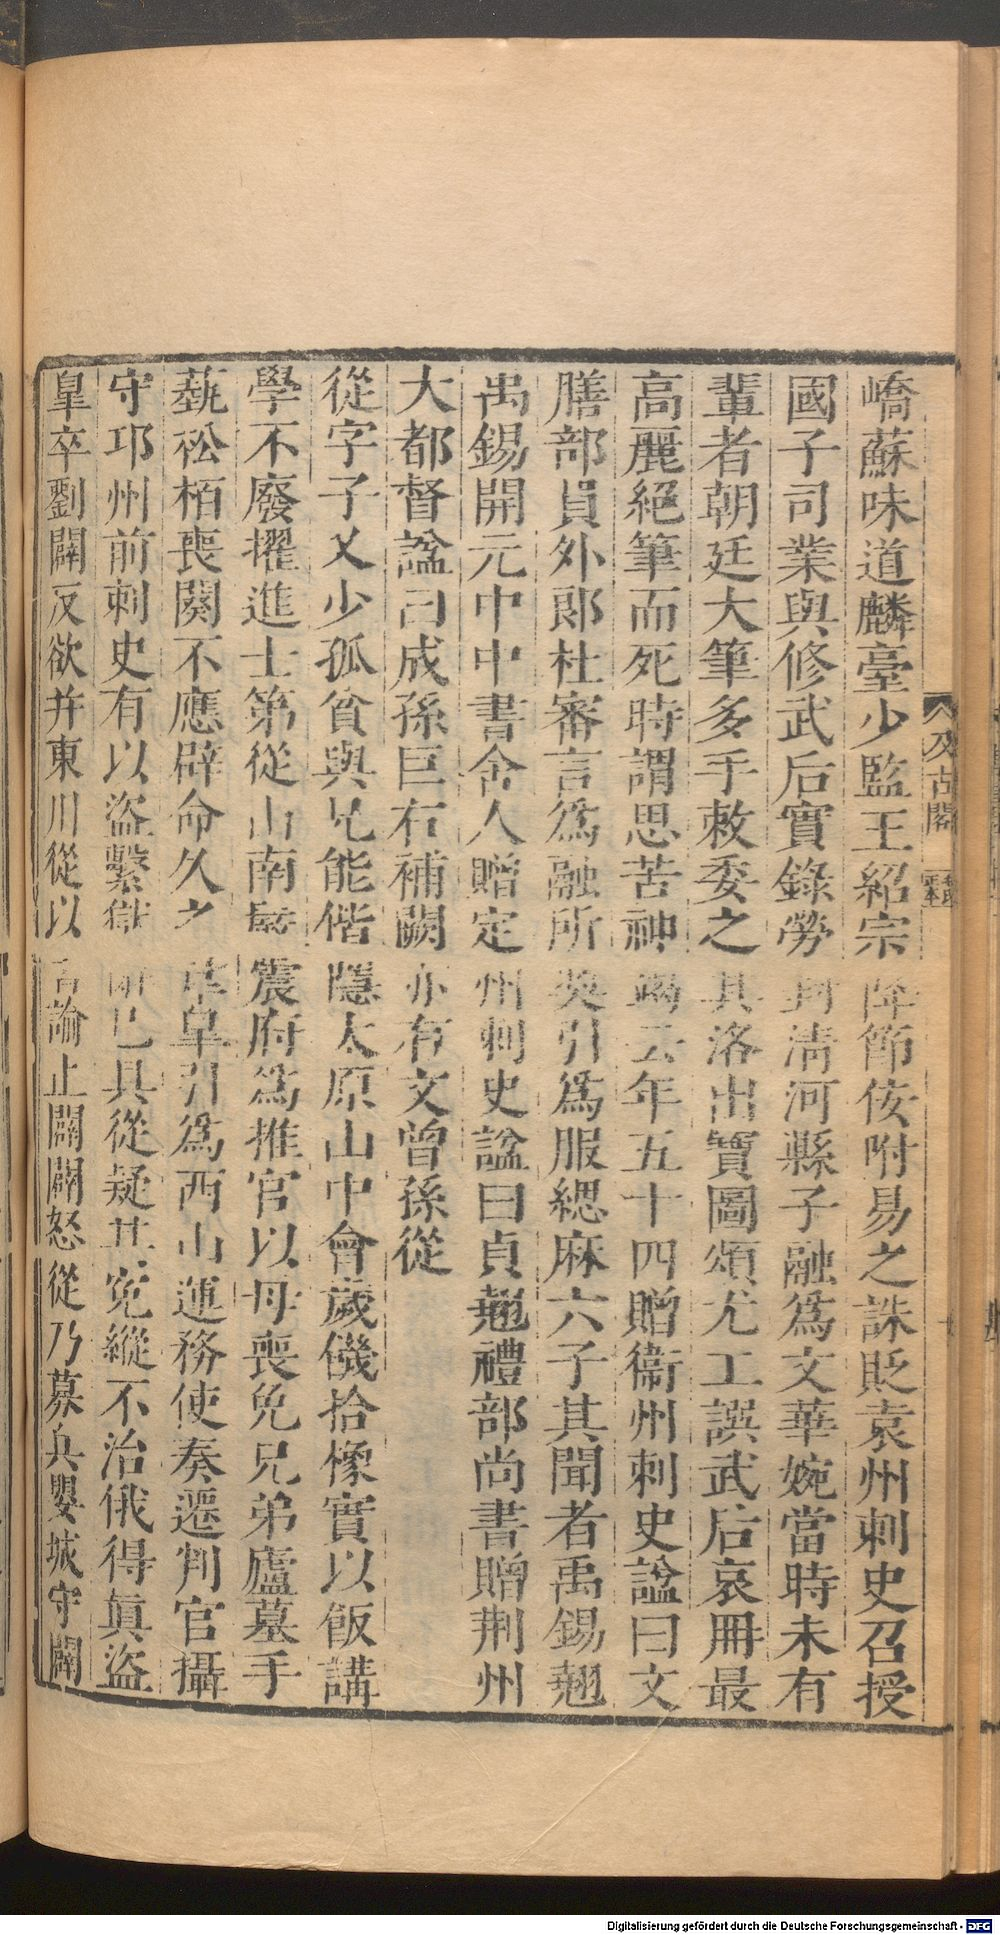 嶠蘇味道麟臺少監王紹宗降節佞附易之誅貶袁州刺史召授
國子司業與修武后實錄勞封淸河縣子融爲文華婉當時未有
輩者朝廷大筆多手敕委之其洛出寶圖頌尤工譔武后哀冊最
高麗絕筆而死時謂思苦神竭云年五十四贈衞州刺史諡曰文
膳部員外郎杜審言爲融所奬引爲服緦麻六子其聞者禹錫翹
禹錫開元中中書舍人贈定州刺史諡曰貞翹禮部尚書贈荆州
大都督諡曰成孫巨右補闕亦有文曾孫從
從字子乂少孤貧與兄能偕隱太原山中會歲儀拾橡實以飯講
學不廢擢進士第從山南嚴震府爲推官以母喪免兄弟廬墓手
蓺松栢喪闋不應辟命久之韋皐引爲西山運務使奏遷判官攝
守邛州前刺史有以盜繫獄具從疑其冤縱不治俄得眞盜
皐卒劉闢反欲并東川從以言諭止闢闢怒從乃募兵嬰城守闢
汲古閣
Digitalisierung gefördert durch die Deutsche Forschungsgemeinschaft - DFG